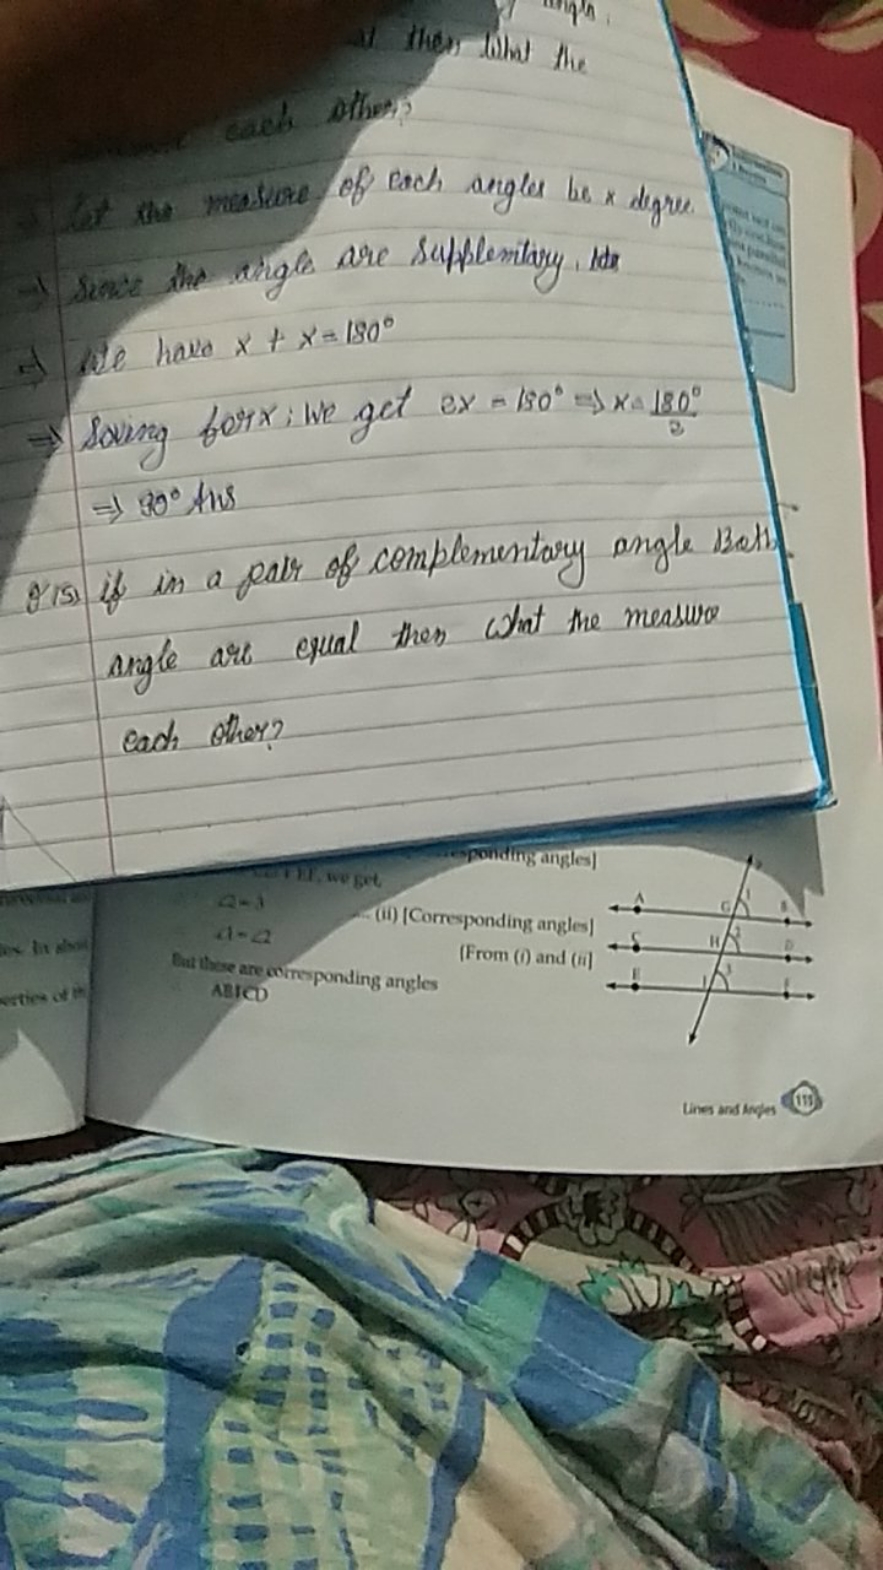 angle.
then what the
each other?
Let the measure of each angles be x degree.
⇒ Since the angle are Supplemitary,
⇒ We have x + x = 180°
⇒ Soving for x; We get 2x = 180° ⇒ x = 180°
2
⇒ 90° Ans
Q 15) if in a pair of complementary angle Both
angle are equal then what the measure
each other?
sponding angles]
EF, we get,
∠2 = 3
.... (ii) [Corresponding angles]
∠1 = ∠2
[From (i) and (ii)]
But these are corresponding angles
AB||CD
erties of th
A G 1 B
C H 2 D
E I 3 F
Lines and Angles 115